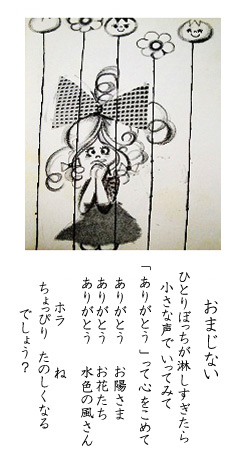 おまじない
ひとりぼっちが淋しすぎたら
小さな声でいってみて
「ありがとう」って心をこめて
ありがとう　お陽さま
ありがとう　お花たち
ありがとう　水色の風さん
ホラ　　ね
ちょっぴり　たのしくなる
でしょう？